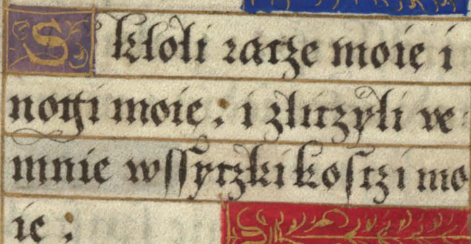 Skloli racze moie i
nogi moie : i zliczyli ve
mnie wssytzki kosczi mo
ie :